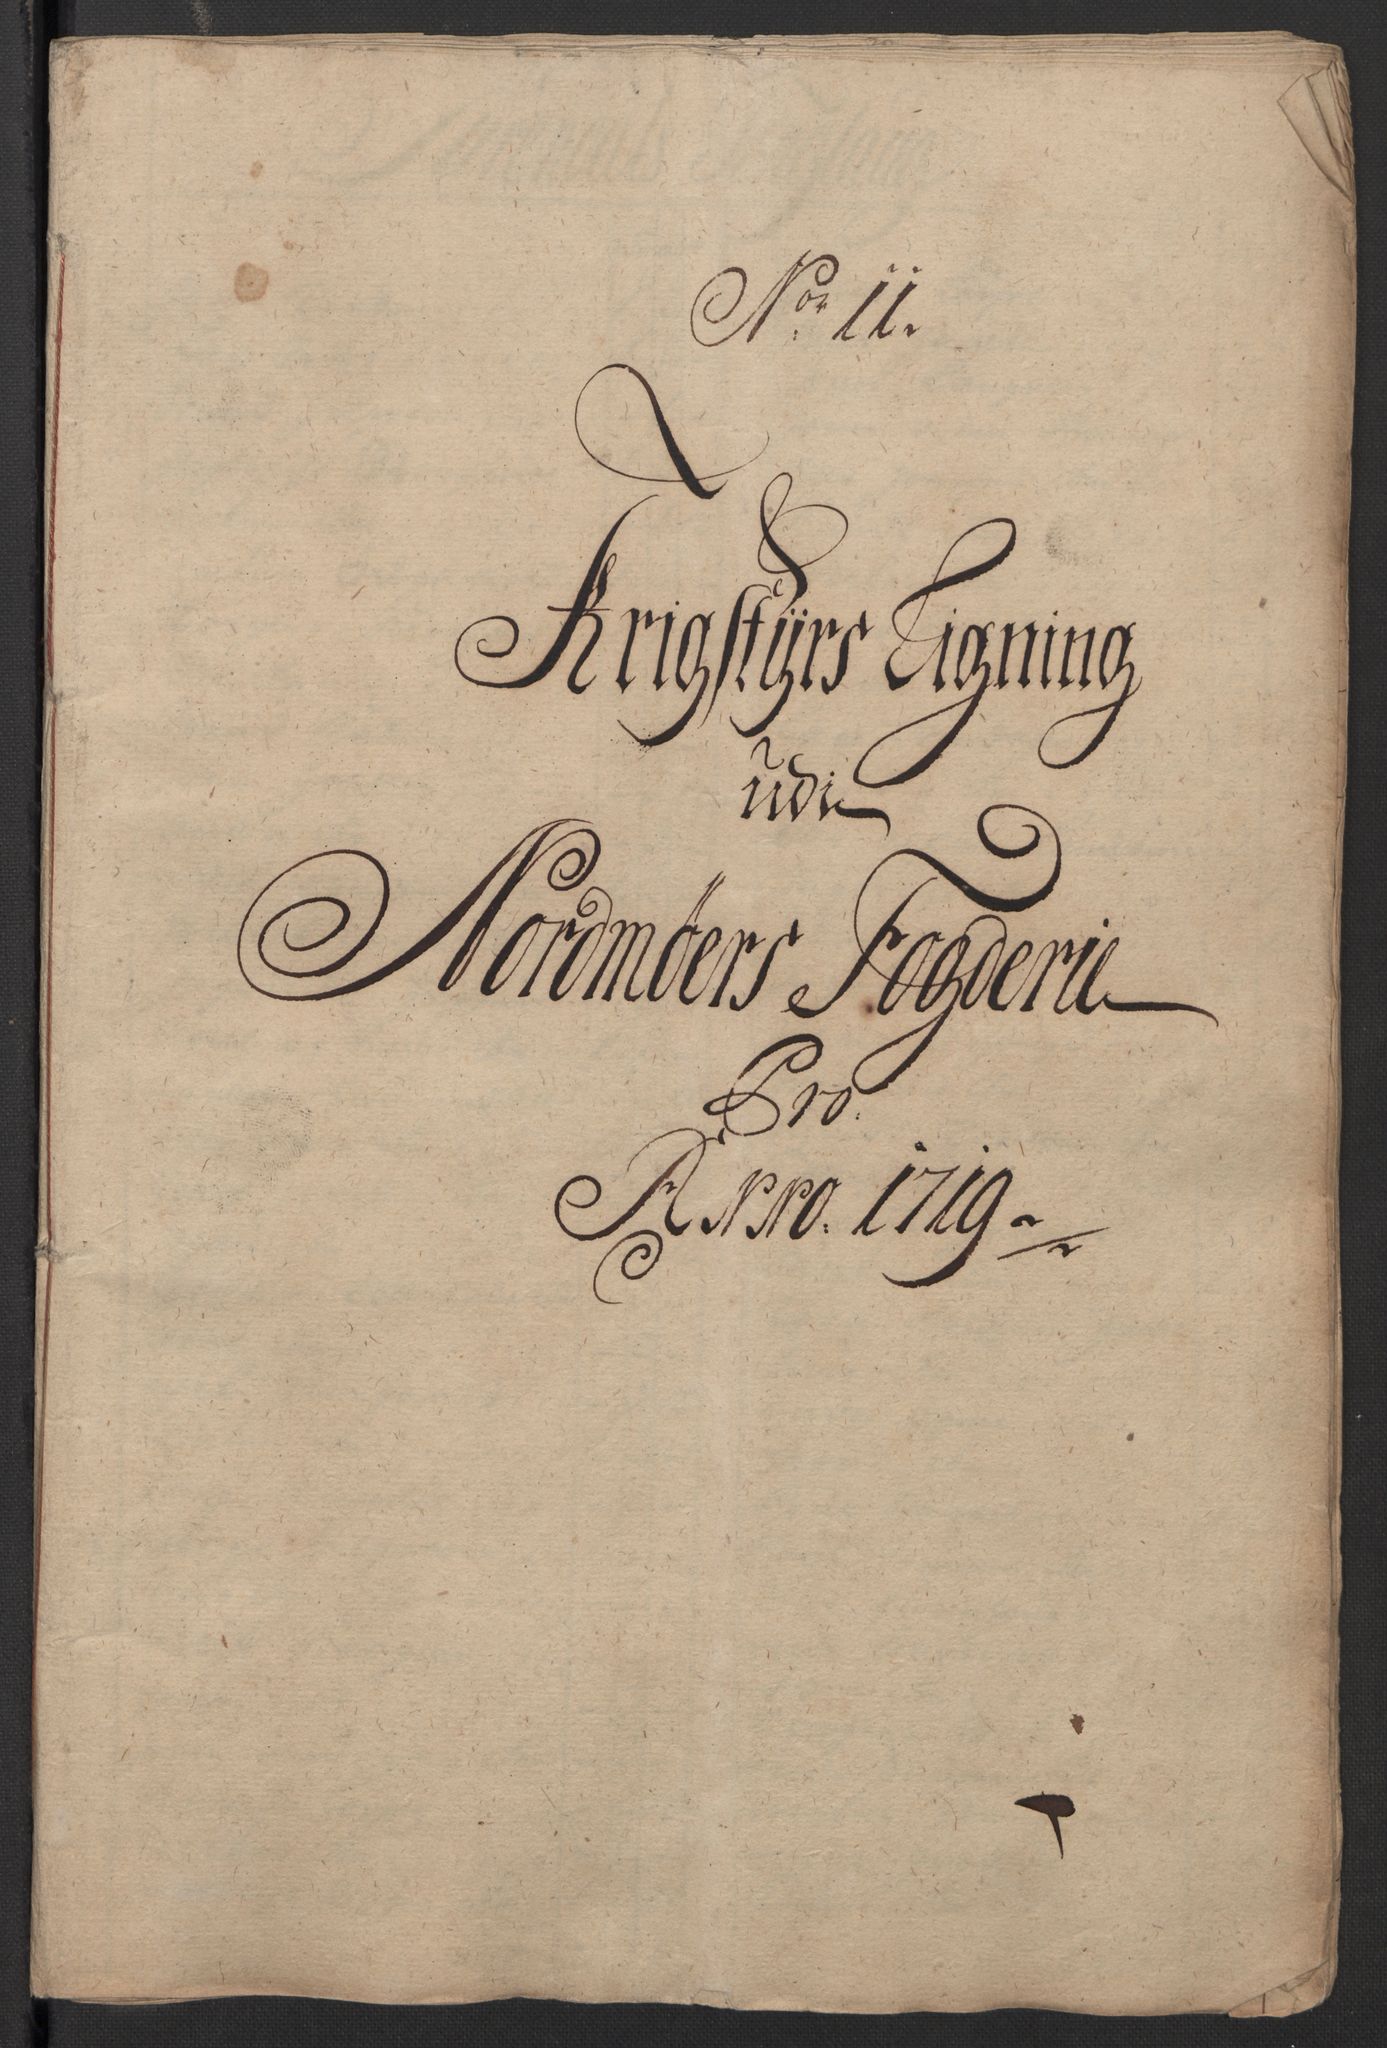 No. 11.
Krigstÿrs Ligning
udi
Nordmöers Fogderie
Pro.
Anno. 1719